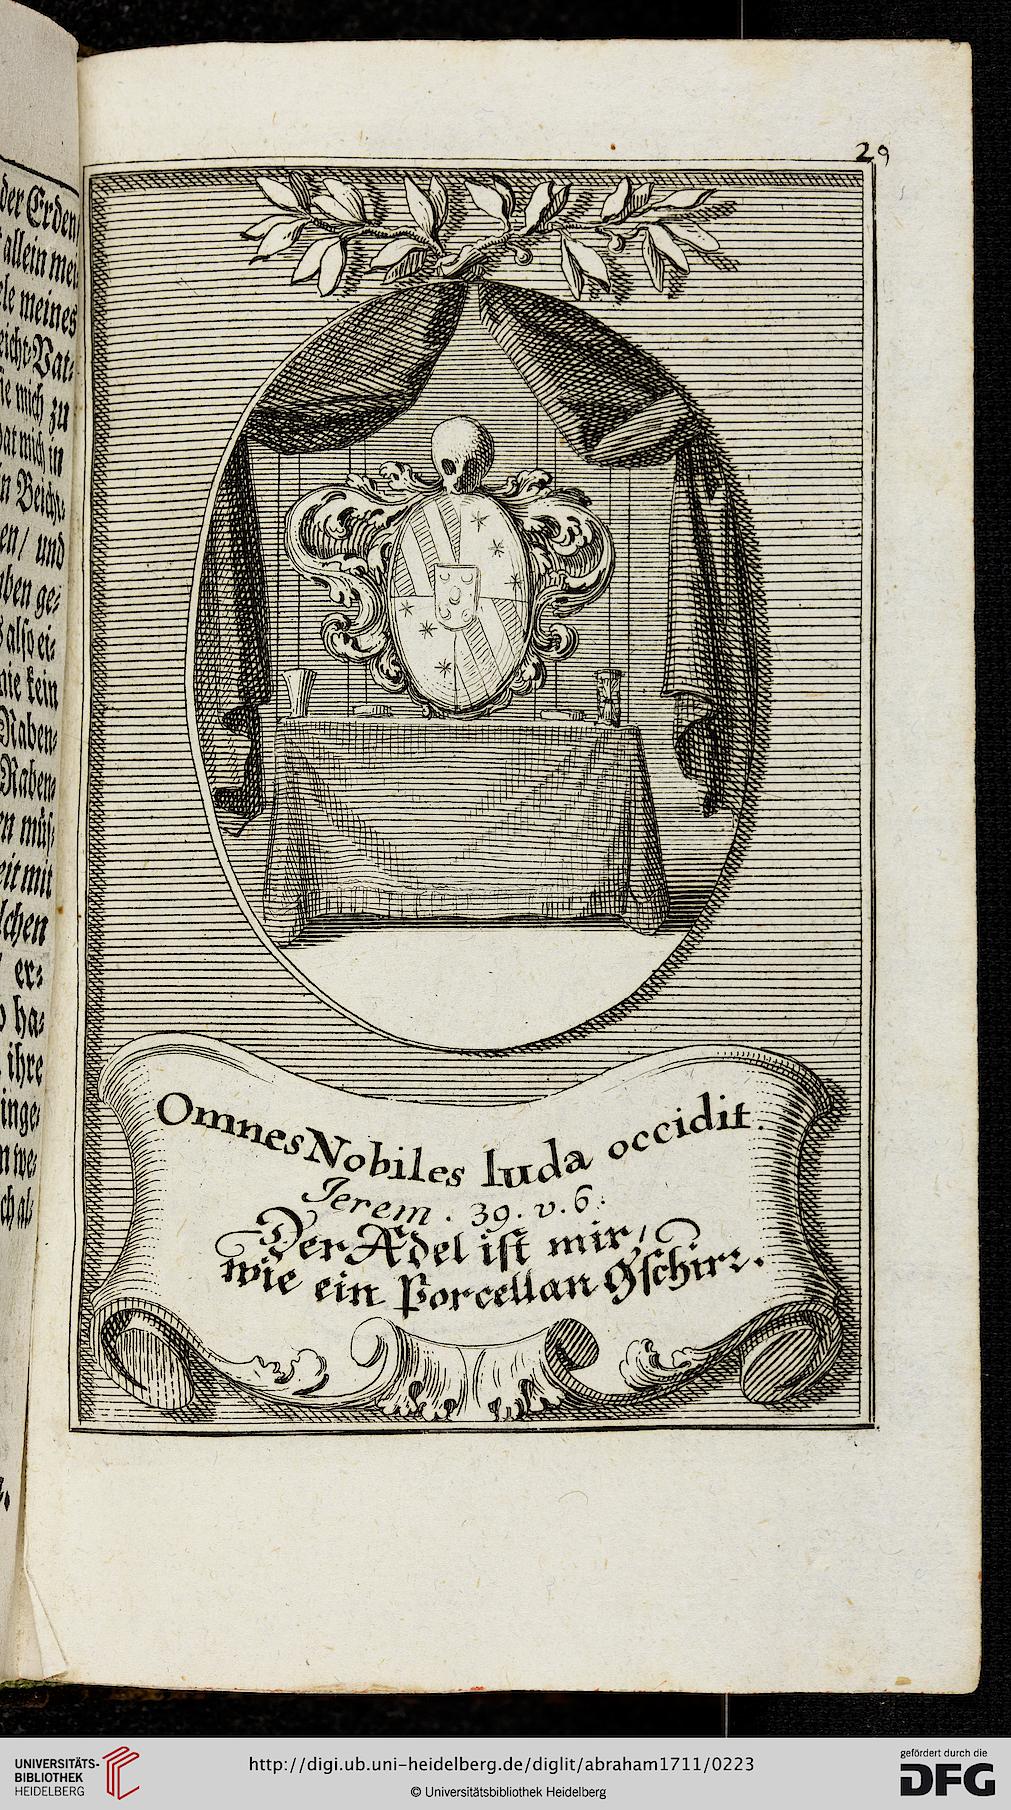 29
der Erden
allein mei
ele meines
eicht-Vat-
ie mich zu
hat mich in
n Beicht-
en / und
aben ge-
s also ei-
nie kein
Raben-
Raben-
en müs-
eit mit
lchen
er-
ha-
ihre
inge-
n we-
ch al-
Omnes Nobiles Iuda occidit.
Ierem. 39. v. 6.
Der Adel ist mir,
wie ein Porcellan Gschirr.
UNIVERSITÄTS-
BIBLIOTHEK
HEIDELBERG
http://digi.ub.uni-heidelberg.de/diglit/abraham1711/0223
© Universitätsbibliothek Heidelberg
gefördert durch die
DFG